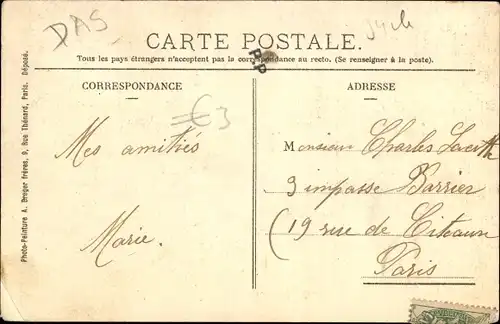 DAS
CARTE POSTALE.
Tous les pays étrangers n'acceptent pas la correspondance au recto. (Se renseigner à la poste).
R.P.
CORRESPONDANCE
ADRESSE
€3
Mes amitiés
Marie.
Monsieur Charles
3 impasse Barrier
(19 rue de Citeaux
Paris
Photo-Peinture A. Breger frères, 9, Rue Thénard, Paris. Déposé.